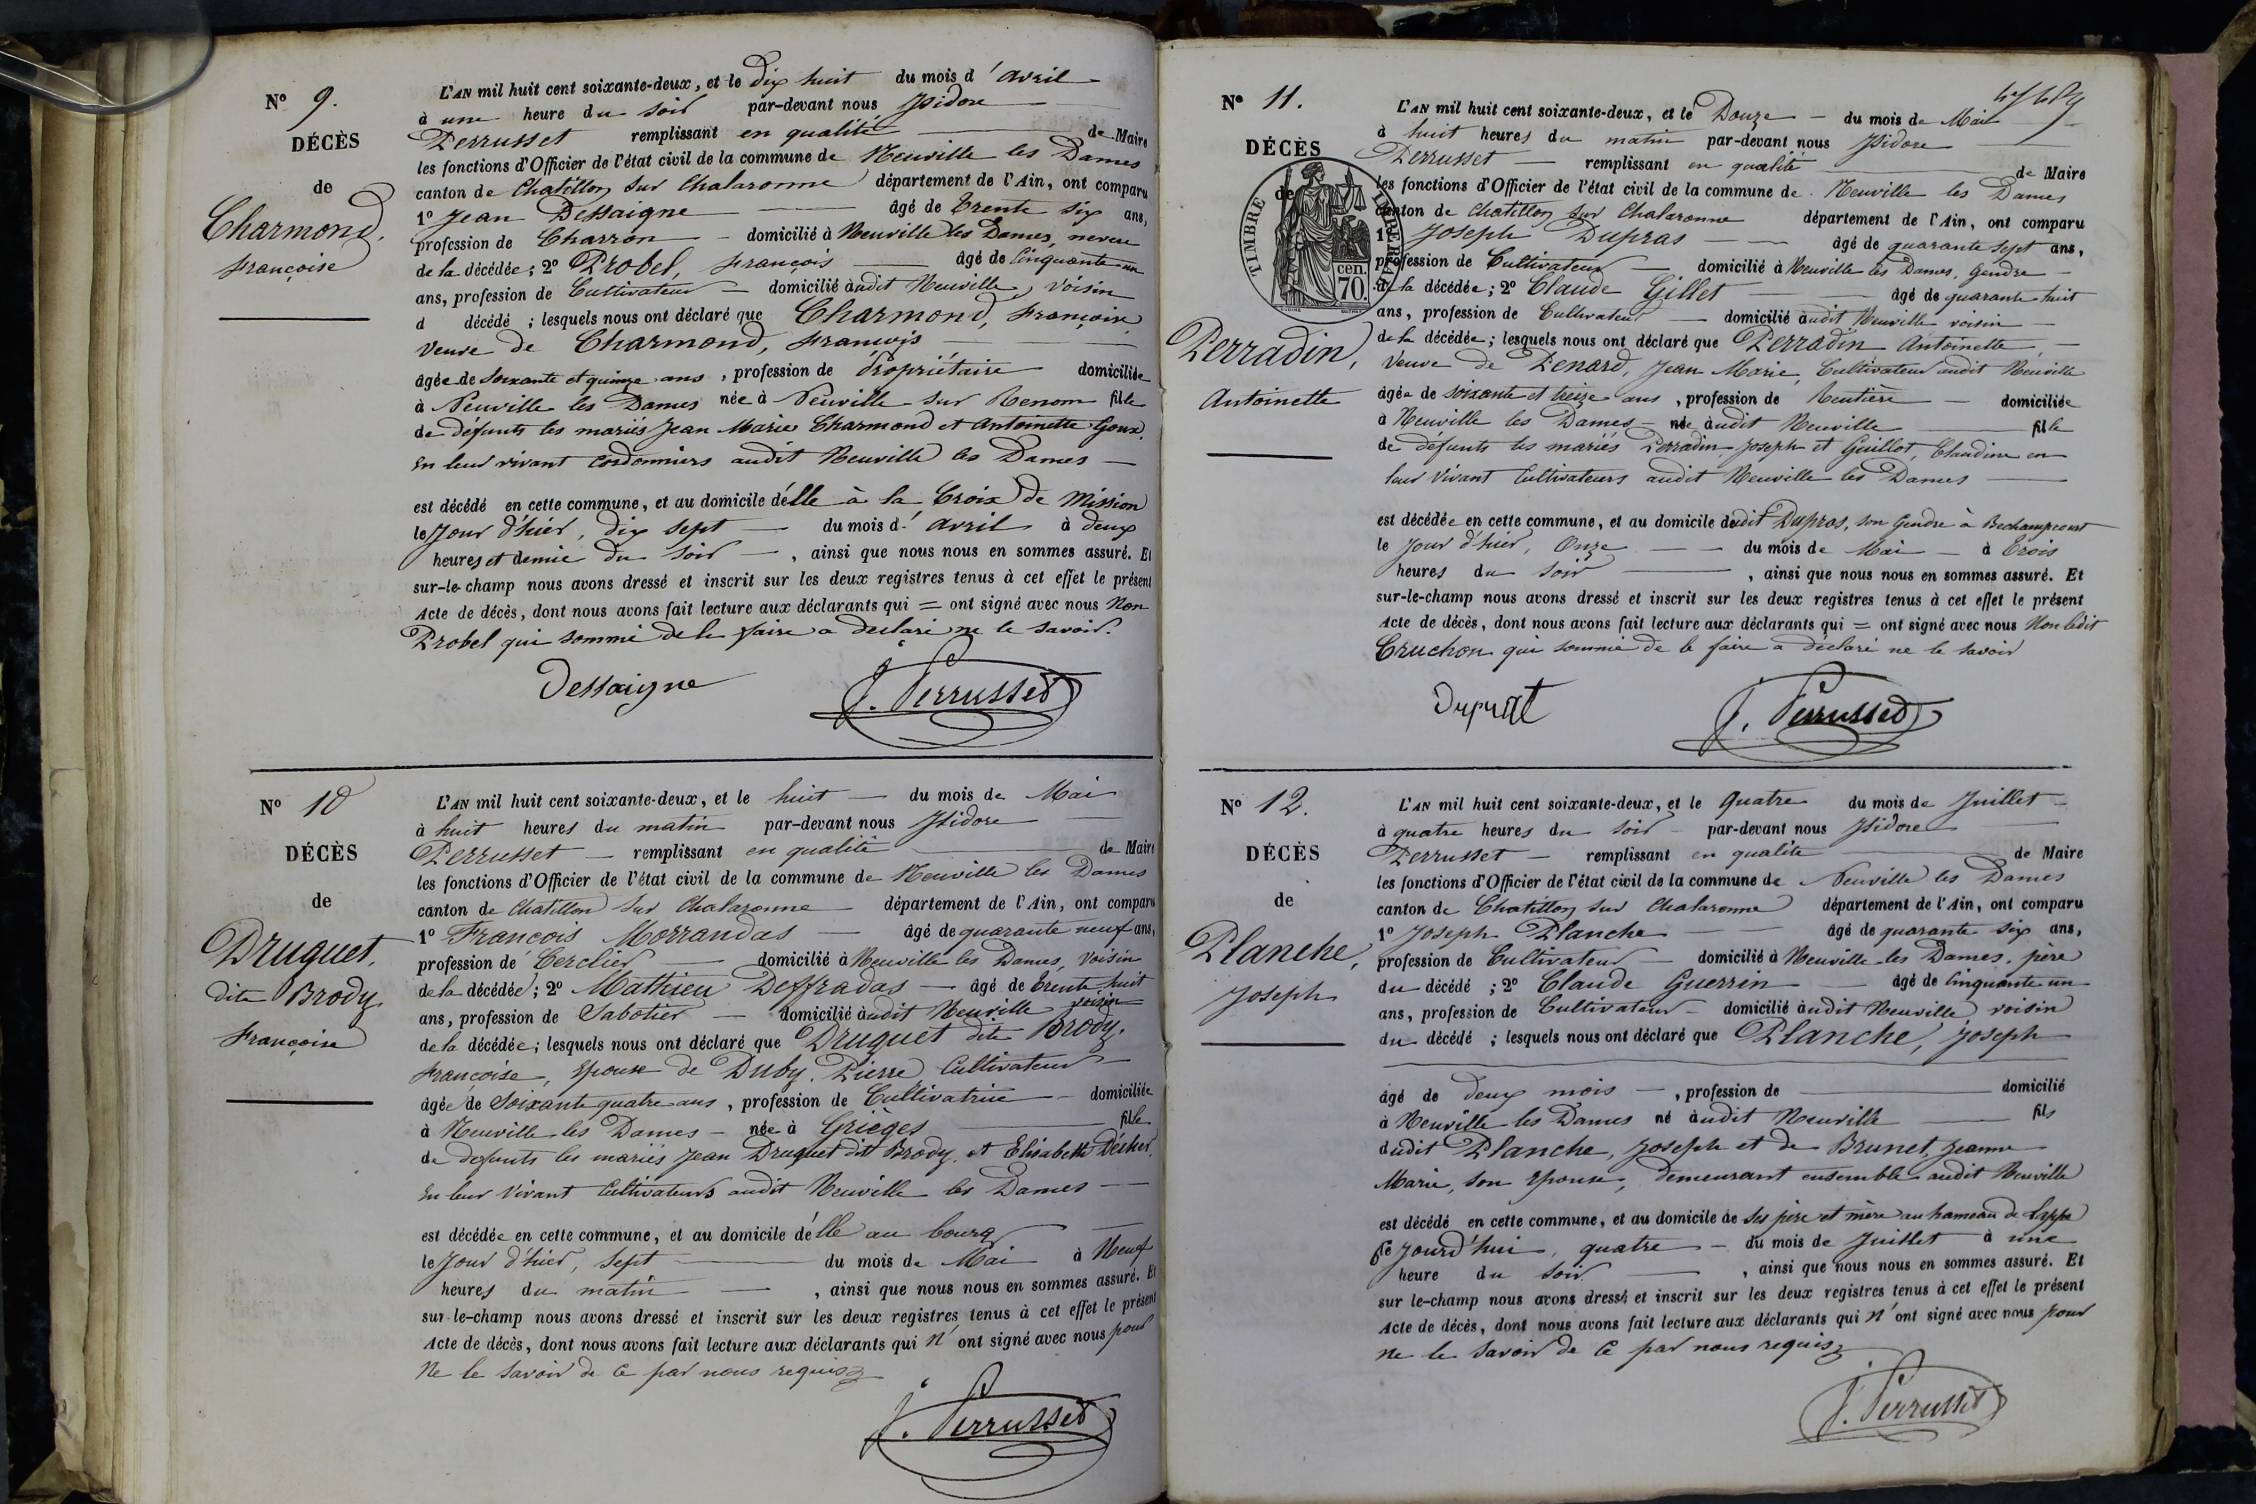 N° 9.
DÉCÈS
de
Charmond,
françoise
L'AN mil huit cent soixante-deux, et le Dix huit du mois d'avril
à une heure du soir par-devant nous Isidore
Perrusset remplissant en qualité de Maire
les fonctions d'Officier de l'état civil de la commune de Neuville les Dames
canton de Chatillon sur Chalaronne département de l'Ain, ont comparu
1° Jean Dessaigne âgé de trente six ans,
profession de Charron domicilié à Neuville les Dames, neveu
de la décédée; 2° Probel, françois âgé de Cinquante un
ans, profession de Cultivateur domicilié audit Neuville, voisin
d décédé ; lesquels nous ont déclaré que Charmond, françoise
veuve de Charmond, françois
âgée de soixante et quinze ans, profession de Propriétaire domiciliée
à Neuville les Dames née à Neuville sur Renom fille
de défunts les mariés Jean Marie Charmond et Antoinette Goux,
En leur vivant cordonniers audit Neuville les Dames
est décédé en cette commune, et au domicile d'elle à la Croix de Mission
le Jour d'hier, dix sept du mois d'avril à deux
heures et demie du soir, ainsi que nous nous en sommes assuré. Et
sur-le-champ nous avons dressé et inscrit sur les deux registres tenus à cet effet le présent
Acte de décès, dont nous avons fait lecture aux déclarants qui = ont signé avec nous Non
Probel qui sommé de le faire a déclaré ne le savoir.
Dessaigne J. Perrusset
N° 10
DÉCÈS
de
Druguet,
dite Brody
françoise
L'AN mil huit cent soixante-deux, et le huit du mois de Mai
à huit heures du matin par-devant nous Isidore
Perrusset remplissant en qualité de Maire
les fonctions d'Officier de l'état civil de la commune de Neuville les Dames
canton de Chatillon sur Chalaronne département de l'Ain, ont comparu
1° François Morrandas âgé de quarante neuf ans,
profession de Cerclier domicilié à Neuville les Dames, voisin
de la décédée; 2° Mathieu Deffradas âgé de trente huit
ans, profession de Sabotier domicilié audit Neuville voisin
de la décédée; lesquels nous ont déclaré que Druguet dite Brody,
françoise, épouse de Duby, Pierre Cultivateur
âgée de Soixante quatre ans, profession de Cultivatrice domiciliée
à Neuville les Dames née à Grièges fille
de defunts les mariés Jean Druguet dit Brody, et Elisabeth Décher,
En leur vivant Cultivateurs audit Neuville les Dames
est décédée en cette commune, et au domicile d'elle au bourg
le Jour d'hier, sept du mois de Mai à Neuf
heures du matin, ainsi que nous nous en sommes assuré. Et
sur-le-champ nous avons dressé et inscrit sur les deux registres tenus à cet effet le présent
Acte de décès, dont nous avons fait lecture aux déclarants qui n'ont signé avec nous pour
Ne le savoir de ce par nous requis
J. Perrusset
N° 11.
DÉCÈS
de
TIMBRE IMPÉRIAL
70. cen.
Perradin,
Antoinette
L'AN mil huit cent soixante-deux, et le Douze du mois de Mai
à huit heures du matin par-devant nous Isidore
Perrusset remplissant en qualité de Maire
les fonctions d'Officier de l'état civil de la commune de Neuville les Dames
canton de Chatillon sur Chalaronne département de l'Ain, ont comparu
1° Joseph Dupras âgé de quarante sept ans,
profession de Cultivateur domicilié à Neuville les Dames, Gendre
de la décédée; 2° Claude Gillet âgé de quarante huit
ans, profession de Cultivateur domicilié audit Neuville voisin
de la décédée; lesquels nous ont déclaré que Perradin Antoinette
Veuve de Penard, Jean Marie, Cultivateur audit Neuville
âgée de soixante et treize ans, profession de Rentière domiciliée
à Neuville les Dames née audit Neuville fille
de défunts les mariés Perradin, Joseph et Guillot, Claudine en
leur vivant Cultivateurs audit Neuville les Dames
est décédée en cette commune, et au domicile dudit Dupras, son Gendre à Bechampcourt
le Jour d'hier, Onze du mois de Mai à Trois
heures du soir, ainsi que nous nous en sommes assuré. Et
sur-le-champ nous avons dressé et inscrit sur les deux registres tenus à cet effet le présent
Acte de décès, dont nous avons fait lecture aux déclarants qui = ont signé avec nous Non ledit
Cruchon qui sommé de le faire a déclaré ne le savoir
Duprat J. Perrusset
N° 12.
DÉCÈS
de
Planche,
Joseph
L'AN mil huit cent soixante-deux, et le Quatre du mois de Juillet
à quatre heures du soir par-devant nous Isidore
Perrusset remplissant en qualité de Maire
les fonctions d'Officier de l'état civil de la commune de Neuville les Dames
canton de Chatillon sur Chalaronne département de l'Ain, ont comparu
1° Joseph Planche âgé de quarante six ans,
profession de Cultivateur domicilié à Neuville les Dames, père
du décédé ; 2° Claude Guerrin âgé de Cinquante un
ans, profession de Cultivateur domicilié audit Neuville voisin
du décédé ; lesquels nous ont déclaré que Planche, Joseph
âgé de deux mois, profession de domicilié
à Neuville les Dames né audit Neuville fils
dudit Planche, Joseph et de Brunet, Jeanne
Marie, son épouse, demeurant ensemble audit Neuville
est décédé en cette commune, et au domicile de ses père et mère au hameau de Lappe
ce Jourd'hui, quatre du mois de Juillet à une
heure du soir, ainsi que nous nous en sommes assuré. Et
sur le-champ nous avons dressé et inscrit sur les deux registres tenus à cet effet le présent
Acte de décès, dont nous avons fait lecture aux déclarants qui n'ont signé avec nous pour
ne le savoir de ce par nous requis
J. Perrusset